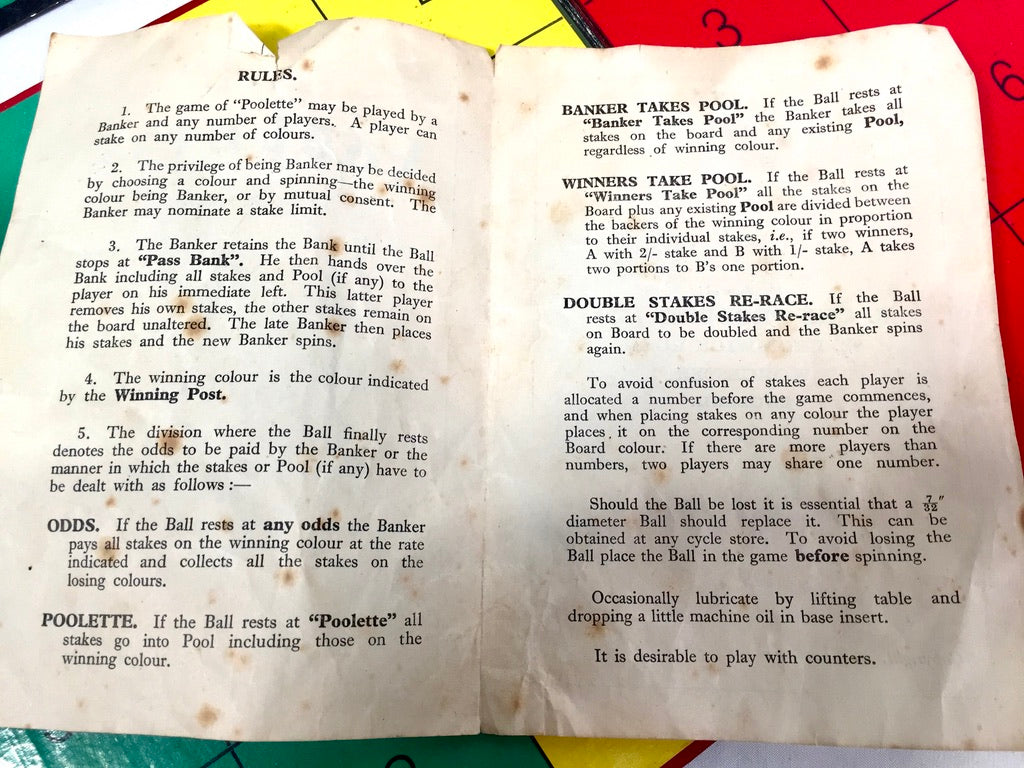 RULES.
1. The game of "Poolette" may be played by a
Banker and any number of players. A player can
stake on any number of colours.
2. The privilege of being Banker may be decided
by choosing a colour and spinning—the winning
colour being Banker, or by mutual consent. The
Banker may nominate a stake limit.
3. The Banker retains the Bank until the Ball
stops at "Pass Bank". He then hands over the
Bank including all stakes and Pool (if any) to the
player on his immediate left. This latter player
removes his own stakes, the other stakes remain on
the board unaltered. The late Banker then places
his stakes and the new Banker spins.
4. The winning colour is the colour indicated
by the Winning Post.
5. The division where the Ball finally rests
denotes the odds to be paid by the Banker or the
manner in which the stakes or Pool (if any) have to
be dealt with as follows :—
ODDS. If the Ball rests at any odds the Banker
pays all stakes on the winning colour at the rate
indicated and collects all the stakes on the
losing colours.
POOLETTE. If the Ball rests at "Poolette" all
stakes go into Pool including those on the
winning colour.
BANKER TAKES POOL. If the Ball rests at
"Banker Takes Pool" the Banker takes all
stakes on the board and any existing Pool,
regardless of winning colour.
WINNERS TAKE POOL. If the Ball rests at
"Winners Take Pool" all the stakes on the
Board plus any existing Pool are divided between
the backers of the winning colour in proportion
to their individual stakes, i.e., if two winners,
A with 2/- stake and B with 1/- stake, A takes
two portions to B's one portion.
DOUBLE STAKES RE-RACE. If the Ball
rests at "Double Stakes Re-race" all stakes
on Board to be doubled and the Banker spins
again.
To avoid confusion of stakes each player is
allocated a number before the game commences,
and when placing stakes on any colour the player
places it on the corresponding number on the
Board colour. If there are more players than
numbers, two players may share one number.
Should the Ball be lost it is essential that a 7/32"
diameter Ball should replace it. This can be
obtained at any cycle store. To avoid losing the
Ball place the Ball in the game before spinning.
Occasionally lubricate by lifting table and
dropping a little machine oil in base insert.
It is desirable to play with counters.
3
6